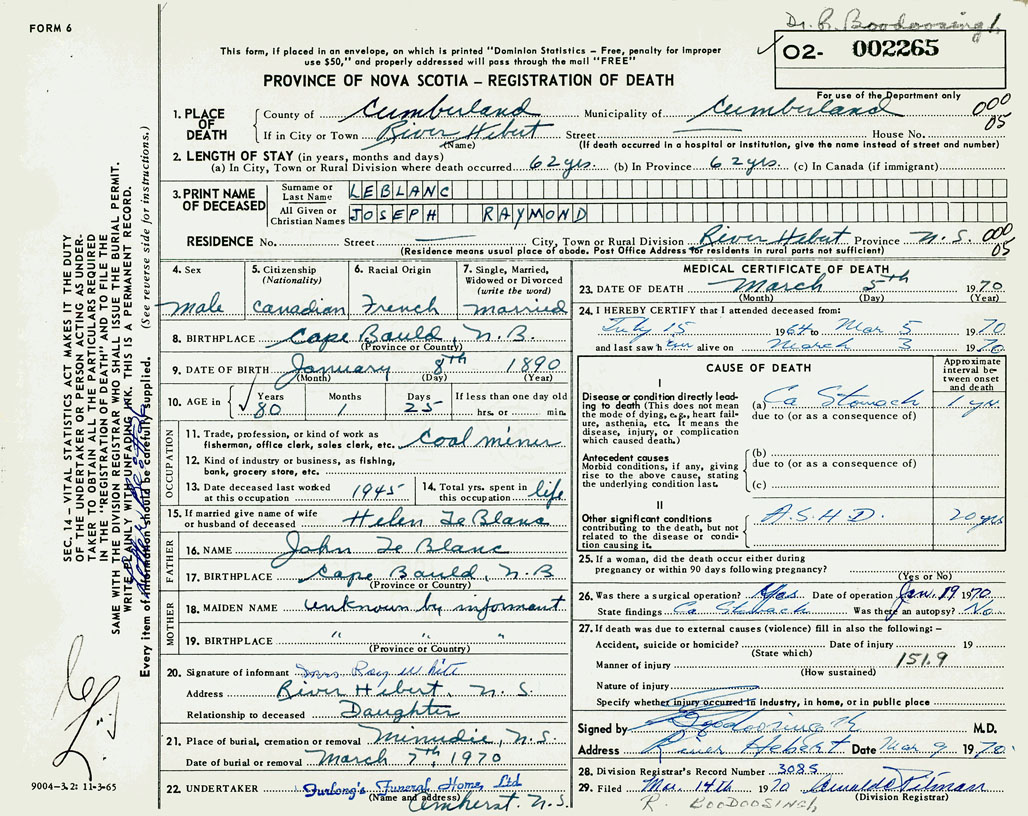 FORM 6
Dr. R. Boodoosingh
This form, if placed in an envelope, on which is printed "Dominion Statistics – Free, penalty for improper
use $50," and properly addressed will pass through the mail "FREE"
02- 002265
PROVINCE OF NOVA SCOTIA – REGISTRATION OF DEATH
For use of the Department only
1. PLACE OF DEATH County of Cumberland Municipality of Cumberland 000 05
If in City or Town River Hebert Street — House No.
(Name) (If death occurred in a hospital or institution, give the name instead of street and number)
2. LENGTH OF STAY (in years, months and days)
(a) In City, Town or Rural Division where death occurred 62 yrs. (b) In Province 62 yrs. (c) In Canada (if immigrant)
3. PRINT NAME OF DECEASED Surname or Last Name LEBLANC
All Given or Christian Names JOSEPH RAYMOND
RESIDENCE No. Street — City, Town or Rural Division River Hebert Province N.S. 000 05
(Residence means usual place of abode. Post Office Address for residents in rural parts not sufficient)
4. Sex Male
5. Citizenship (Nationality) Canadian
6. Racial Origin French
7. Single, Married, Widowed or Divorced (write the word) married
8. BIRTHPLACE Cape Bauld, N.B.
(Province or Country)
9. DATE OF BIRTH January 8th 1890
(Month) (Day) (Year)
10. AGE in Years 80 Months 1 Days 25 If less than one day old
hrs. or min.
OCCUPATION
11. Trade, profession, or kind of work as fisherman, office clerk, sales clerk, etc. Coal miner
12. Kind of industry or business, as fishing, bank, grocery store, etc.
13. Date deceased last worked at this occupation 1945 14. Total yrs. spent in this occupation life
15. If married give name of wife or husband of deceased Helen Le Blanc
FATHER
16. NAME John Le Blanc
17. BIRTHPLACE Cape Bauld, N.B
(Province or Country)
MOTHER
18. MAIDEN NAME unknown by informant
19. BIRTHPLACE " " "
(Province or Country)
20. Signature of informant Mrs Ray White
Address River Hebert, N.S.
Relationship to deceased Daughter
21. Place of burial, cremation or removal Minudie, N.S.
Date of burial or removal March 7th, 1970
22. UNDERTAKER Furlong's Funeral Home Ltd
(Name and address) Amherst. N.S.
MEDICAL CERTIFICATE OF DEATH
23. DATE OF DEATH March 5th 1970
(Month) (Day) (Year)
24. I HEREBY CERTIFY that I attended deceased from:
July 15 1964 to Mar 5 1970
and last saw him alive on March 3 1970
CAUSE OF DEATH
Approximate interval between onset and death
I
Disease or condition directly leading to death (This does not mean the mode of dying, e.g., heart failure, asthenia, etc. It means the disease, injury, or complication which caused death.)
(a) Ca Stomach 1 yr.
due to (or as a consequence of)
Antecedent causes
Morbid conditions, if any, giving rise to the above cause, stating the underlying condition last.
(b)
due to (or as a consequence of)
(c)
II
Other significant conditions contributing to the death, but not related to the disease or condition causing it.
A.S.H.D. 20 yrs
25. If a woman, did the death occur either during pregnancy or within 90 days following pregnancy?
(Yes or No)
26. Was there a surgical operation? Yes Date of operation Jan. 19 1970
State findings Ca Stomach Was there an autopsy? No
27. If death was due to external causes (violence) fill in also the following: –
Accident, suicide or homicide? Date of injury 19
(State which)
Manner of injury 151.9
(How sustained)
Nature of injury
Specify whether injury occurred in Industry, in home, or in public place
Signed by Boodoosingh M.D.
Address River Hebert Date Mar 9 1970
28. Division Registrar's Record Number 3085
29. Filed Mar. 14th 1970 Pitman
(Division Registrar)
R. BOODOOSINGH
SEC. 14 – VITAL STATISTICS ACT MAKES IT THE DUTY
OF THE UNDERTAKER OR PERSON ACTING AS UNDER-
TAKER TO OBTAIN ALL THE PARTICULARS REQUIRED
IN THE "REGISTRATION OF DEATH" AND TO FILE THE
SAME WITH THE DIVISION REGISTRAR WHO SHALL ISSUE THE BURIAL PERMIT.
WRITE PLAINLY WITH UNFADING INK. THIS IS A PERMANENT RECORD.
Every item of information should be carefully supplied. (See reverse side for instructions.)
9004-3.2: 11-3-65